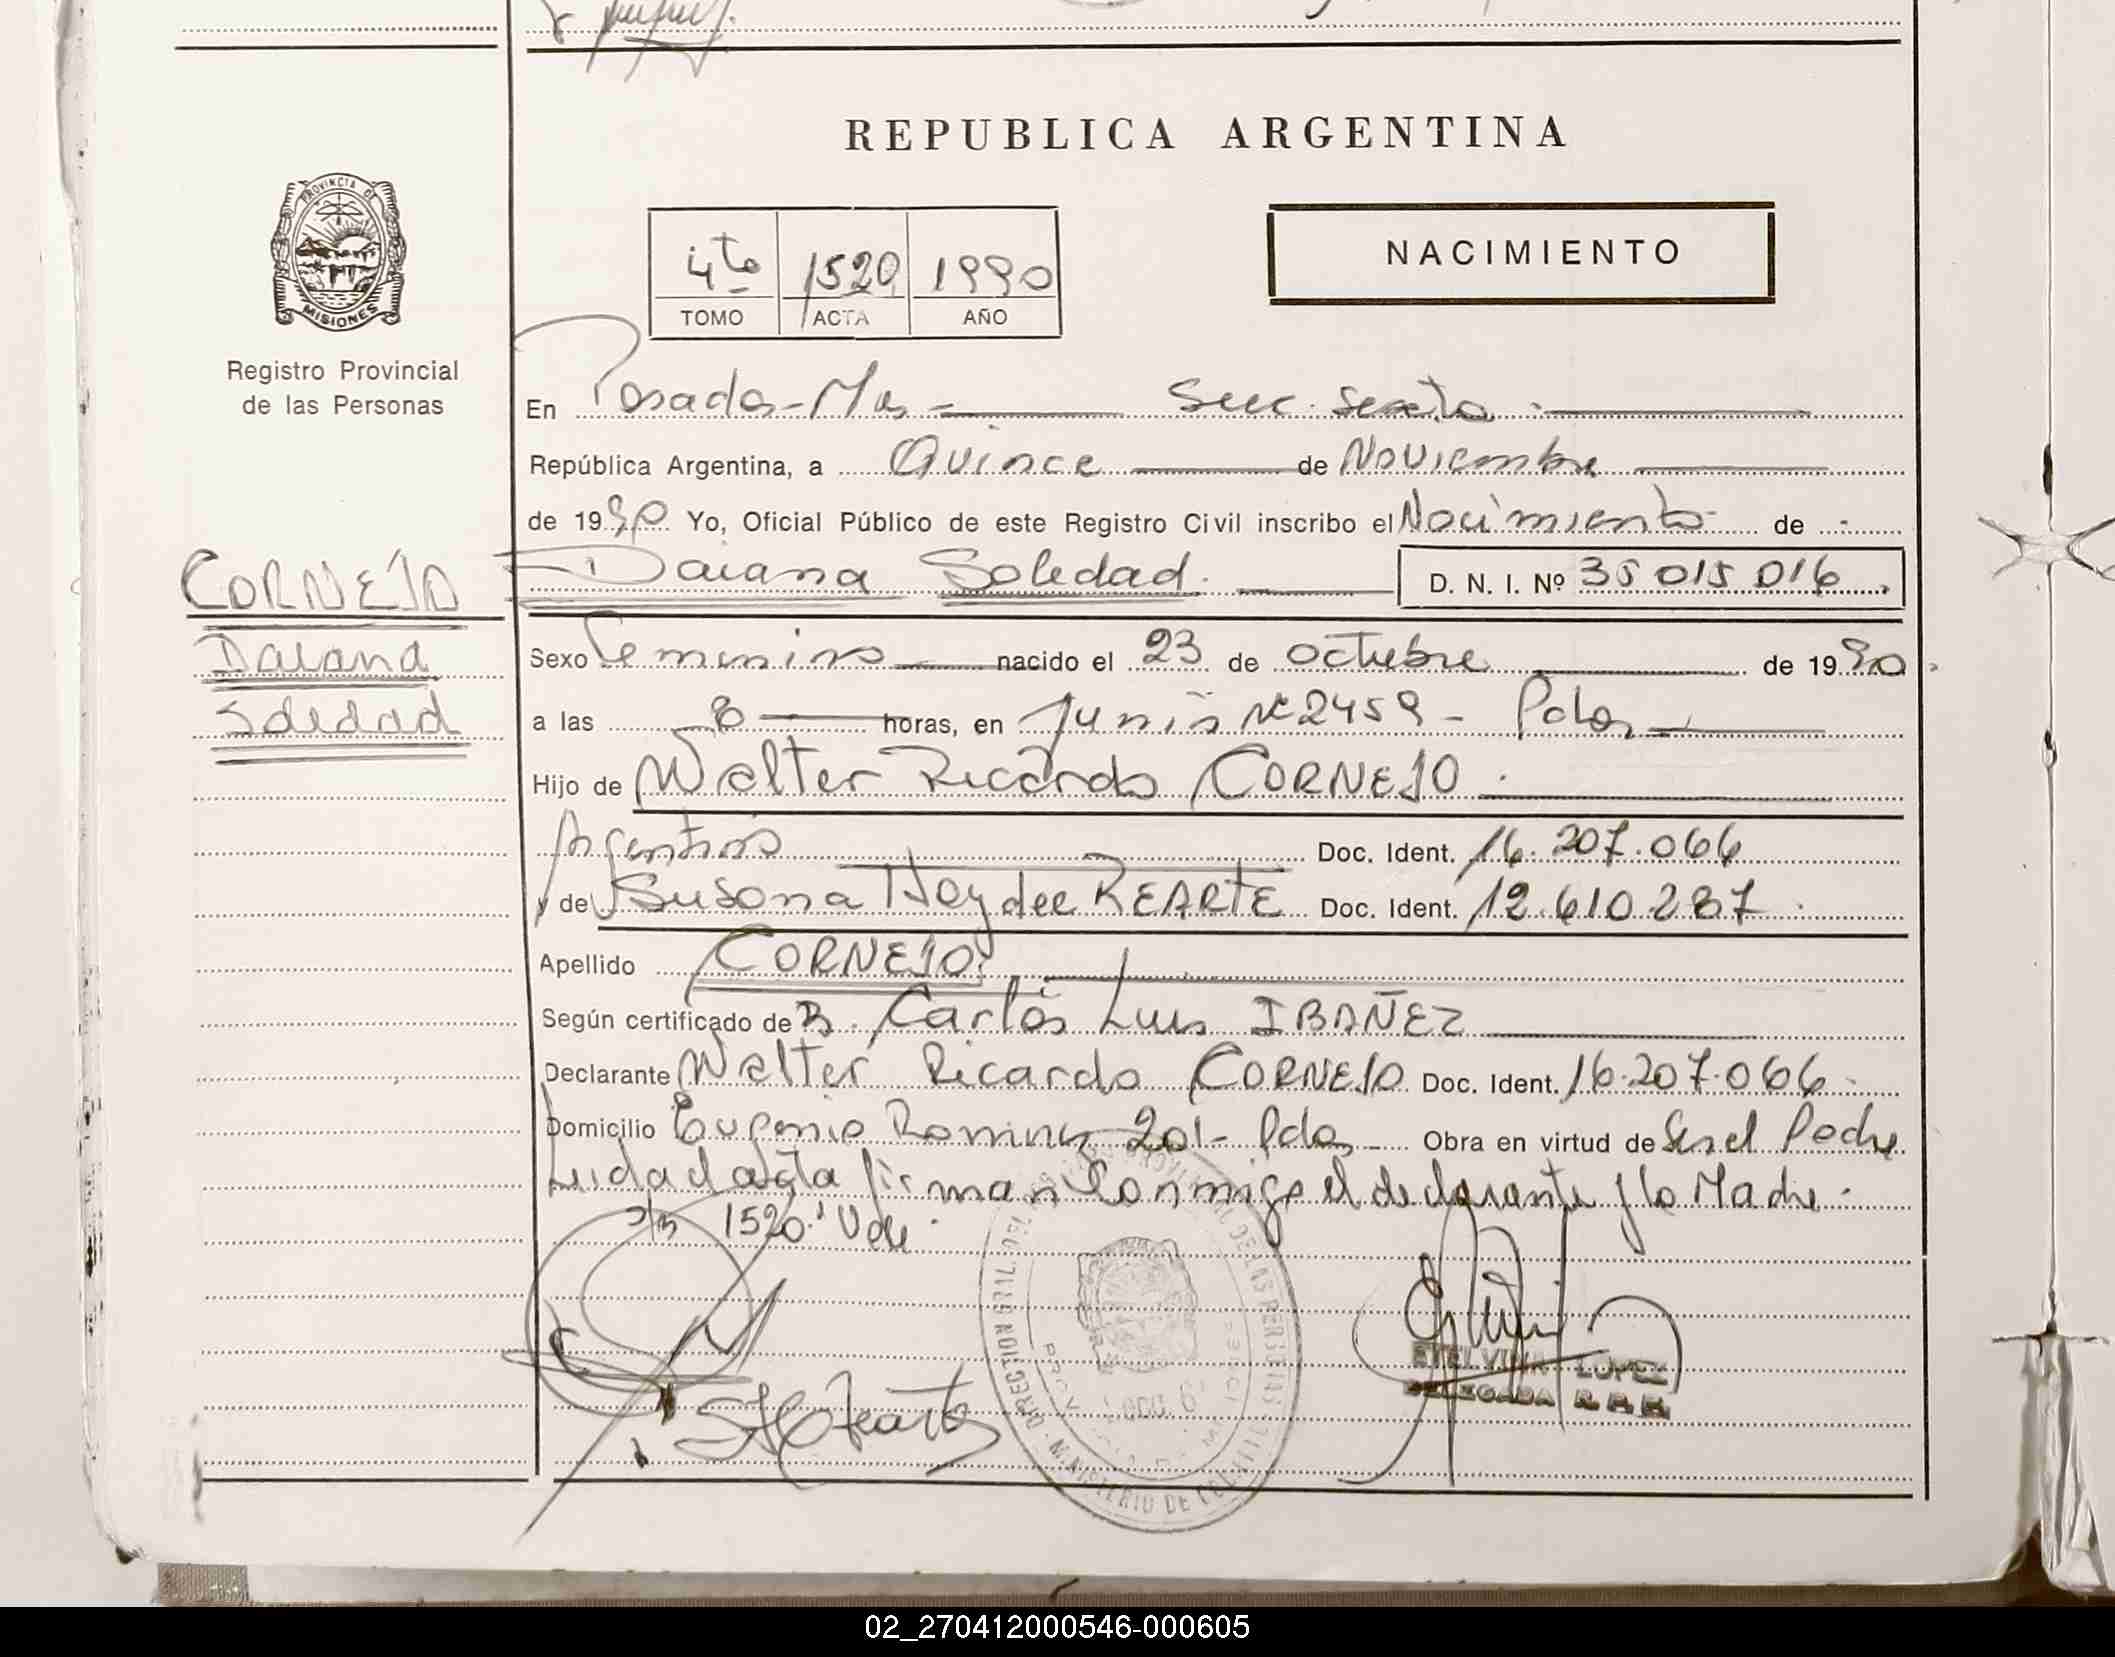 REPUBLICA ARGENTINA
PROVINCIA DE
MISIONES
Registro Provincial
de las Personas
4to 1520 1990
TOMO ACTA AÑO
NACIMIENTO
En Posadas-Mns - Secc. sexta -
República Argentina, a Quince de Noviembre
de 1990 Yo, Oficial Público de este Registro Civil inscribo el Nacimiento de -
CORNEJO
Daiana
Soledad
Daiana Soledad. D. N. I. Nº 35 015 016
Sexo Femenino nacido el 23 de octubre de 1990
a las 8 horas, en Junín Nº 2459 - Pdas
Hijo de Walter Ricardo CORNEJO
Argentino Doc. Ident. 16.207.066
y de Susana Haydee REARTE Doc. Ident. 12.610.287
Apellido CORNEJO
Según certificado de Carlos Luis IBAÑEZ
Declarante Walter Ricardo CORNEJO Doc. Ident. 16.207.066
Domicilio Eugenio Ramirez 201- Pdas - Obra en virtud de Ser el Padre
Leida el acta firman conmigo el declarante y la Madre.
1520. Vale.
ETELVINA LOPEZ
DELEGADA R.P.P.
MINISTERIO DE
02_270412000546-000605